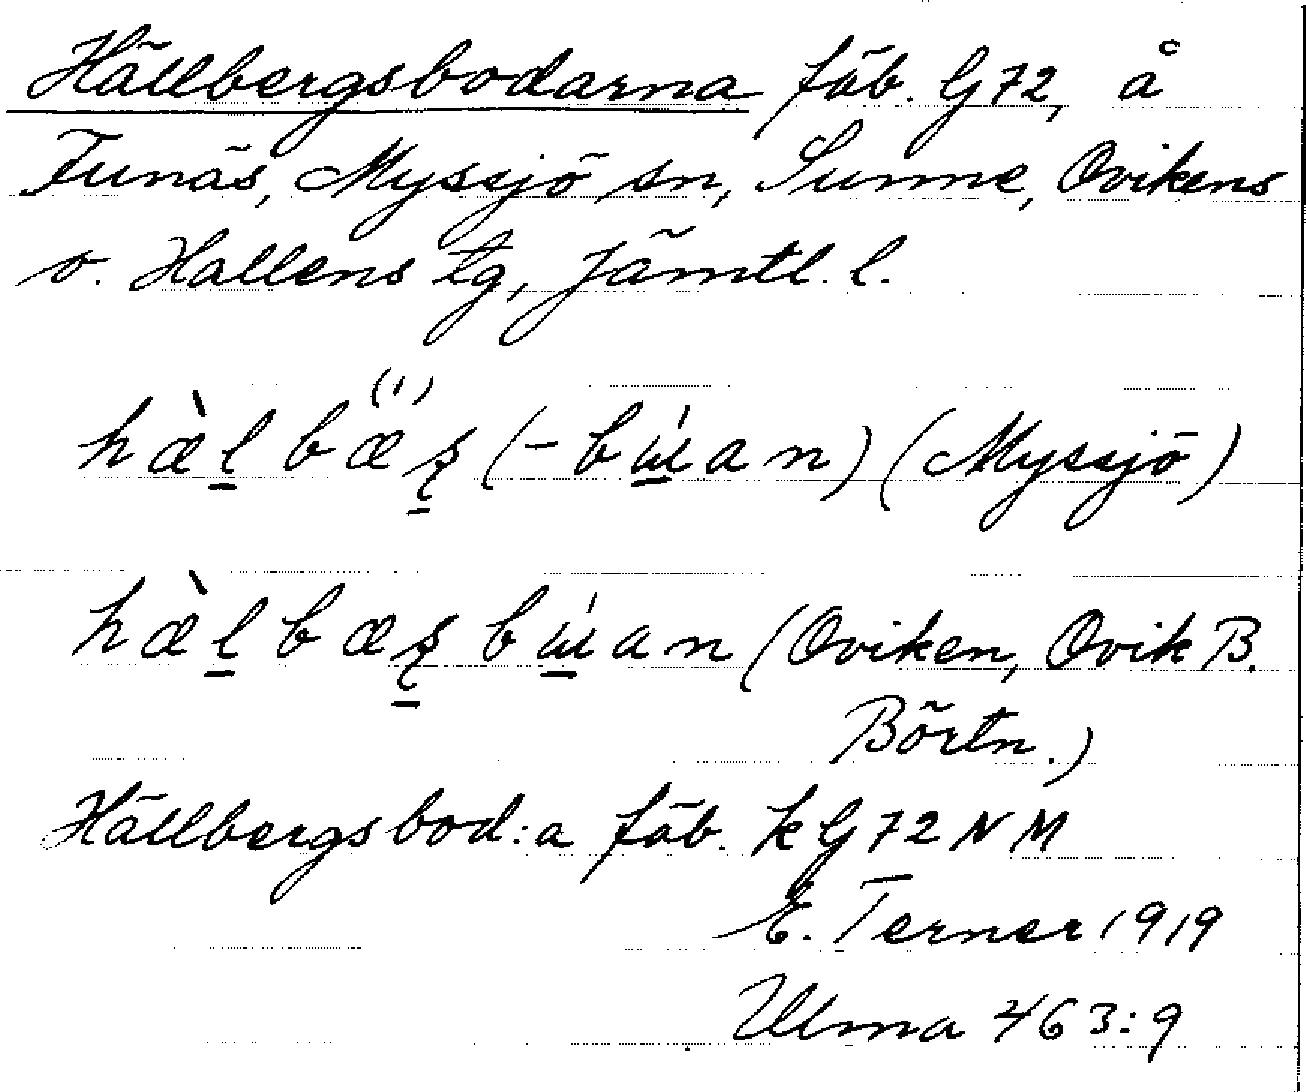 Hällbergsbodarna fäb. G72, å
Funäs, Myssjö sn, Sunne, Ovikens
o. Hallens tg, Jämtl. l.
hæ̀l bæ̈ʂ (-bɯ́an) (Myssjö)
hæ̀l bæʂ bɯ́an (Oviken, Ovik B.
Börtn.)
Hällbergsbod:a fäb. kG72NM
E. Terner 1919
Ulma 463:9